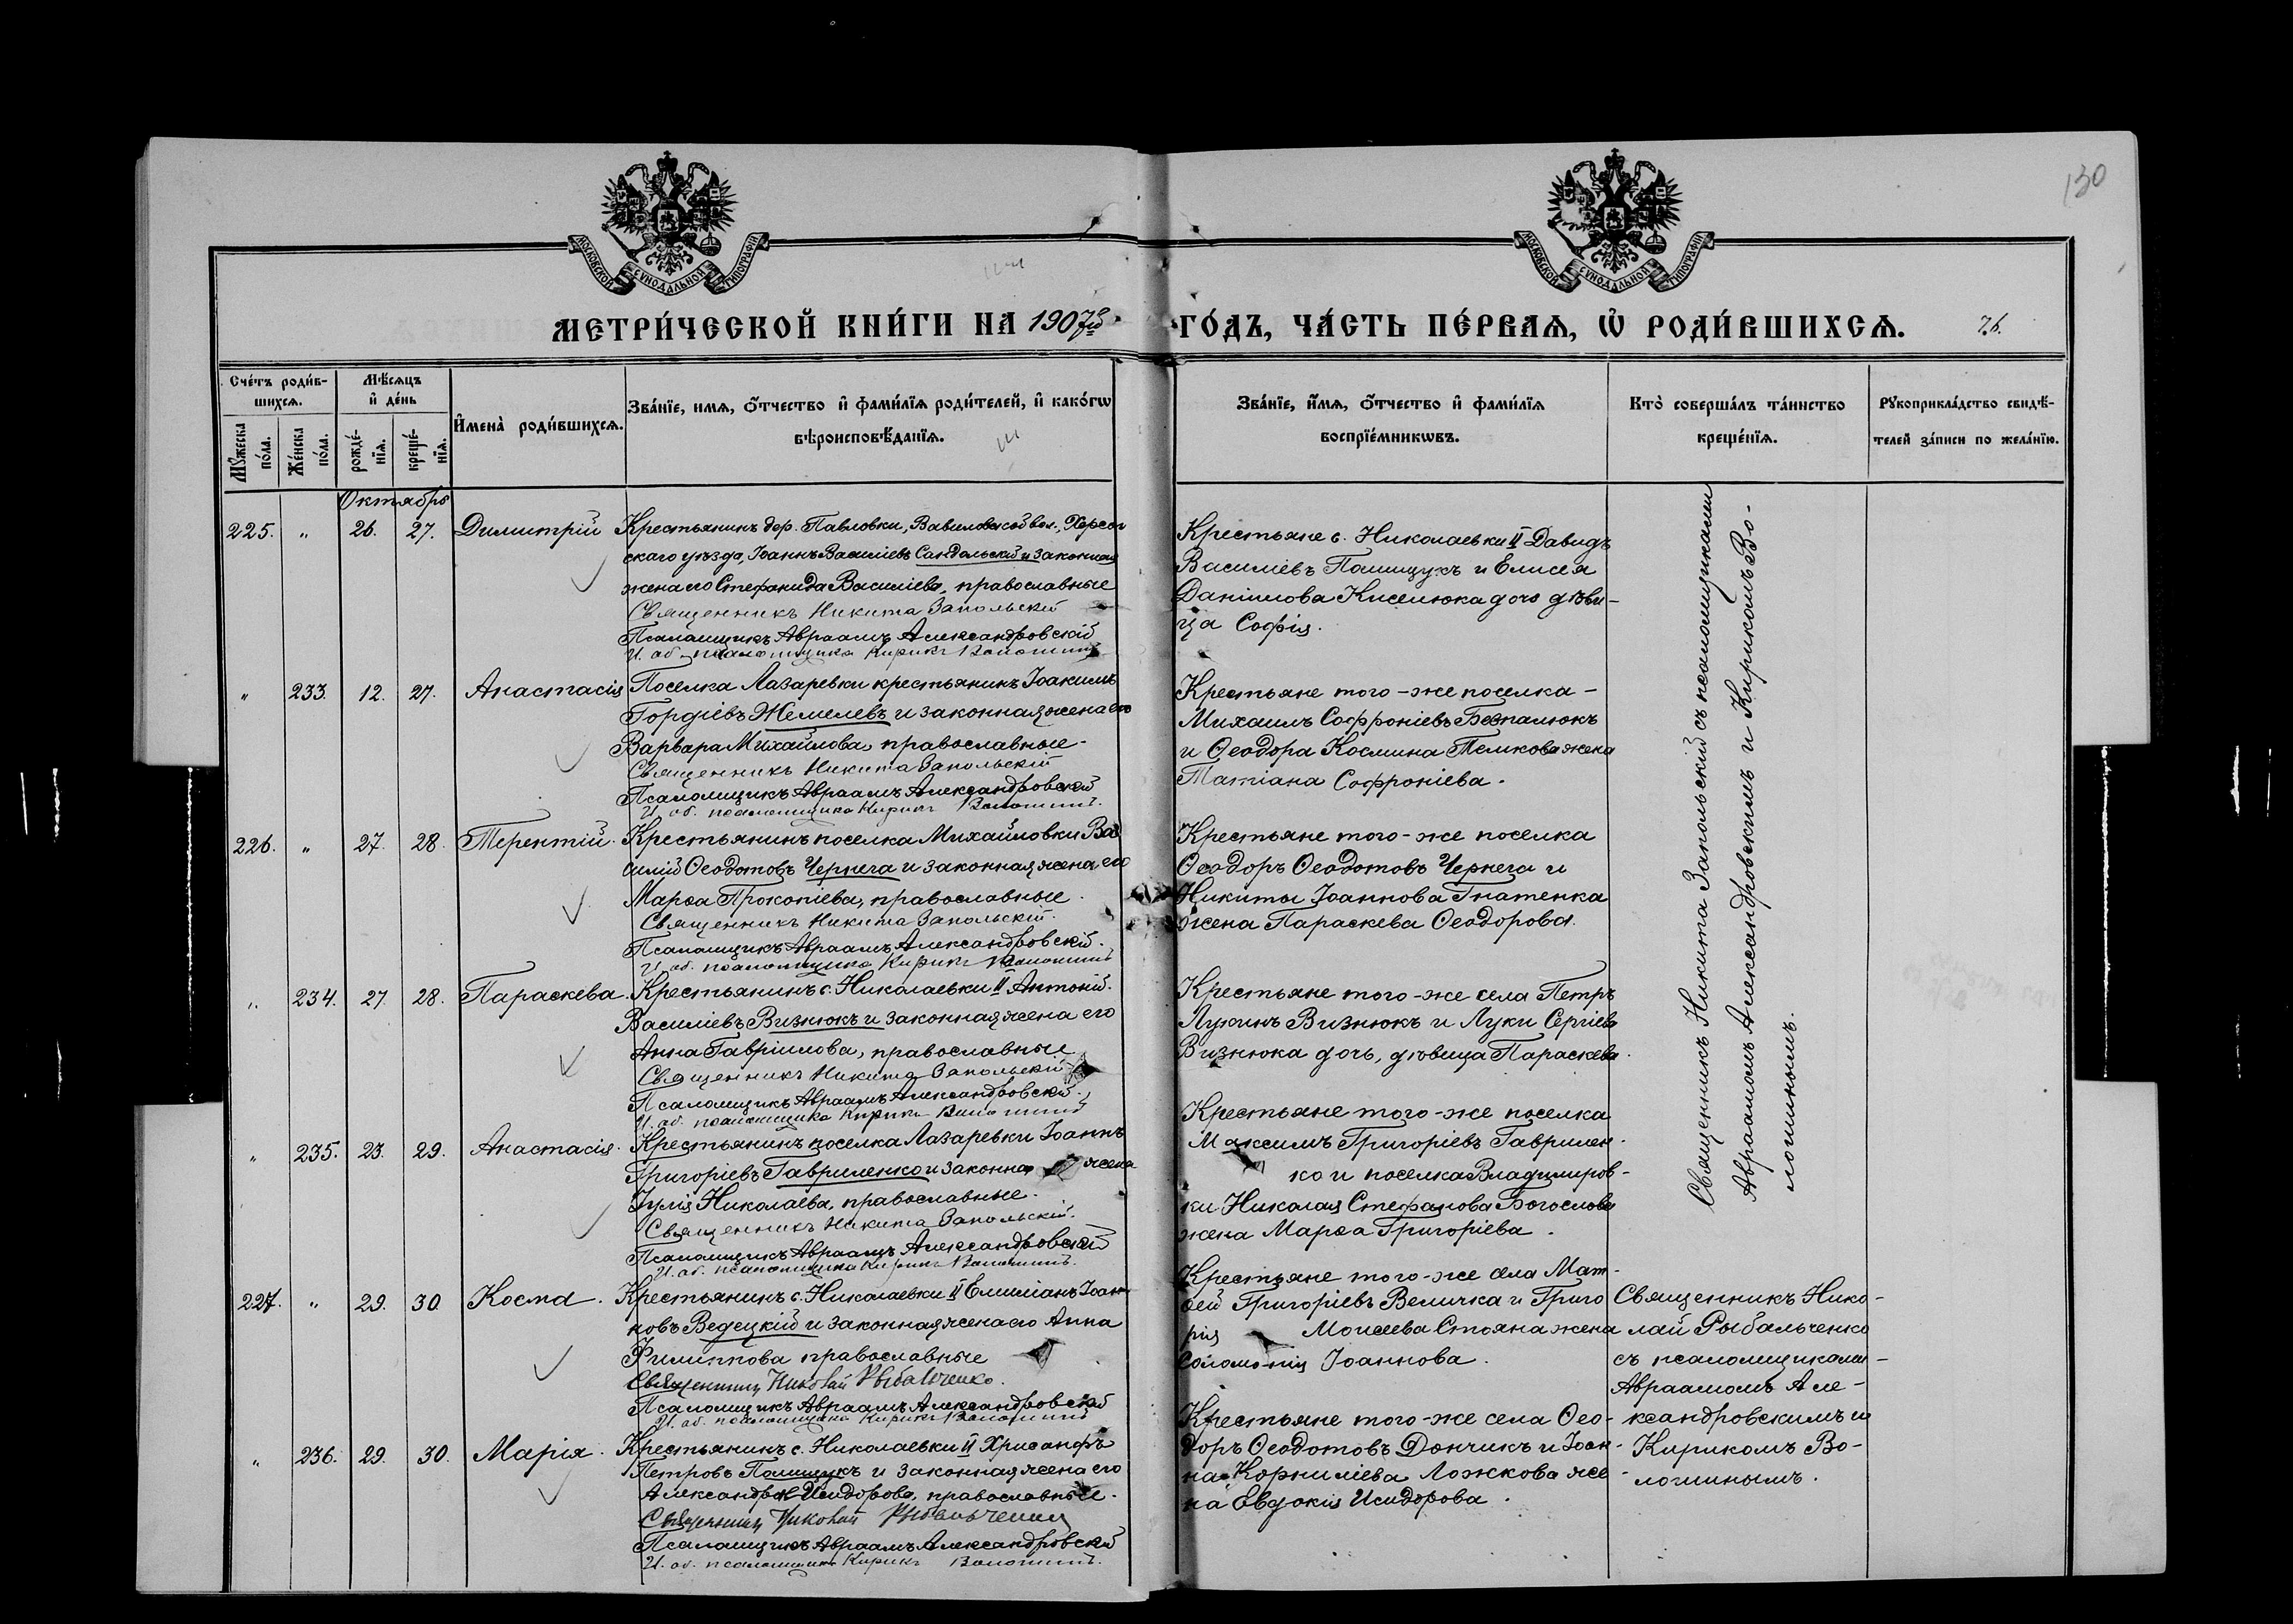 130
МОСКОВСКОЙ СУНОДАЛЬНОЙ ТИПОГРАФІИ
МОСКОВСКОЙ СУНОДАЛЬНОЙ ТИПОГРАФІИ
МЕТРИ́ЧЕСКОЙ КНИ́ГИ НА 1907й ГО́ДЪ, ЧА́СТЬ ПЕ́РВАѦ, Ѽ РОДИ́ВШИХСѦ.
76.
Сче́тъ роди́в-
шихсѧ.
Мѣ́сѧцъ
и҆ де́нь
Мꙋ́жеска
по́ла.
Же́нска
по́ла.
рожде́-
нїѧ.
креще́-
нїѧ.
И҆мена̀ роди́вшихсѧ.
Зва́нїе, имѧ, ѻ҆́тчество и҆ фами́лїѧ роди́телей, и҆ како́гѡ
вѣроисповѣ́данїѧ.
Зва́нїе, и҆́мѧ, ѻ҆́тчество и҆ фами́лїѧ
воспрїе́мникѡвъ.
Кто̀ соверша́лъ та́инство
креще́нїѧ.
Рꙋкоприкла́дство свидѣ́-
телей за́писи по жела́нїю.
Октябрь
225. " 26. 27. Димитрій
Крестьянинъ дер. Павловки, Вавиловской вол., Херсон
скаго уѣзда, Іоаннъ Василіевъ Сандольскій и законная
жена его Стефанида Василіева, православные
Священникъ Никита Запольскій
Псаломщикъ Авраамъ Александровскій
И. об. псаломщика Кирикъ Волошинъ
Крестьяне с. Николаевки II Давидъ
Василіевъ Полищукъ и Елисея
Даніилова Киселюка дочь дѣви-
ца Софія.
" 233. 12. 27. Анастасія
Поселка Лазаревки крестьянинъ Іоакимъ
Гордіевъ Жемелевъ и законная жена его
Варвара Михайлова, православные-
Священникъ Никита Запольскій
Псаломщикъ Авраамъ Александровскій
И. об. псаломщика Кирикъ Волошинъ.
Крестьяне того-же поселка-
Михаилъ Софроніевъ Безпалюкъ
и Ѳеодора Космина Темкова жена
Татіана Софроніева.
226. " 27. 28. Терентій.
Крестьянинъ поселка Михайловки Ва
силій Ѳеодотовъ Чернега и законная жена его
Марѳа Прокопіева, православные.
Священникъ Никита Запольскій.
Псаломщикъ Авраамъ Александровскій.
И. об. псаломщика Кирикъ Волошинъ
Крестьяне того-же поселка
Ѳеодоръ Ѳеодотовъ Чернега и
Никиты Іоаннова Гнатенка
жена Параскева Ѳеодорова.
" 234. 27. 28. Параскева.
Крестьянинъ с. Николаевки II Антоній.
Василіевъ Визнюкъ и законная жена его
Анна Гавріилова, православные
Священникъ Никита Запольскій
Псаломщикъ Авраамъ Александровскій.
И. об. псаломщика Кирикъ Волошинъ
Крестьяне того-же села Петръ
Лукинъ Визнюкъ и Луки Сергіева
Визнюка дочь, дѣвица Параскева.
" 235. 23. 29. Анастасія.
Крестьянинъ поселка Лазаревки Іоаннъ
Григоріевъ Гавриленко и законная жена
Іулія Николаева, православные.
Священникъ Никита Запольскій.
Псаломщикъ Авраамъ Александровскій
И. об. псаломщика Кирикъ Волошинъ.
Крестьяне того-же поселка
Максимъ Григоріевъ Гаврилен-
ко и поселка Владимиров-
ки Николая Стефанова Богослова
жена Марѳа Григоріева.
227. " 29. 30. Косма.
Крестьянинъ с. Николаевки II Емиліанъ Іоан-
новъ Ведецкій и законная жена его Анна
Филиппова православные
Священникъ Николай Рыбальченко.
Псаломщикъ Авраамъ Александровскій
И. об. псаломщика Кирикъ Волошинъ
Крестьяне того-же села Мат-
ѳей Григоріевъ Величка и Григо
рія Моисеева Стояна жена
Соломонія Іоаннова.
" 236. 29. 30. Марія.
Крестьянинъ с. Николаевки II Хрисанфъ
Петровъ Полищукъ и законная жена его
Александра Исидорова, православные.
Священникъ Николай Рыбальченко
Псаломщикъ Авраамъ Александровскій
И. об. псаломщика Кирикъ Волошинъ.
Крестьяне того-же села Ѳео-
доръ Ѳеодотовъ Дончикъ и Іоан-
на Корниліева Ложкова же-
на Евдокія Исидорова.
Священникъ Никита Запольскій съ псаломщиками
Авраамомъ Александровскимъ и Кирикомъ Во-
лошинымъ.
Священникъ Нико-
лай Рыбальченко
съ псаломщиками-
Авраамомъ Але-
ксандровскимъ и
Кирикомъ Во-
лошинымъ.